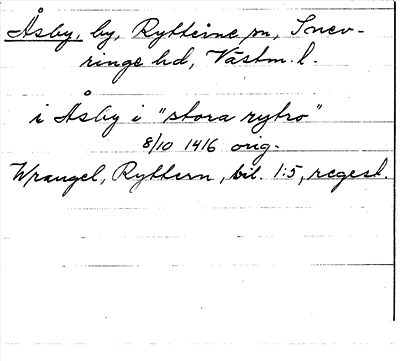 Åsby, by, Rytterne sn, Snev-
ringe hd, Västm. l.
i Åsby i "stora rytro"
8/10 1416 orig.
Wrangel, Ryttern, bil. 1:5, regest.